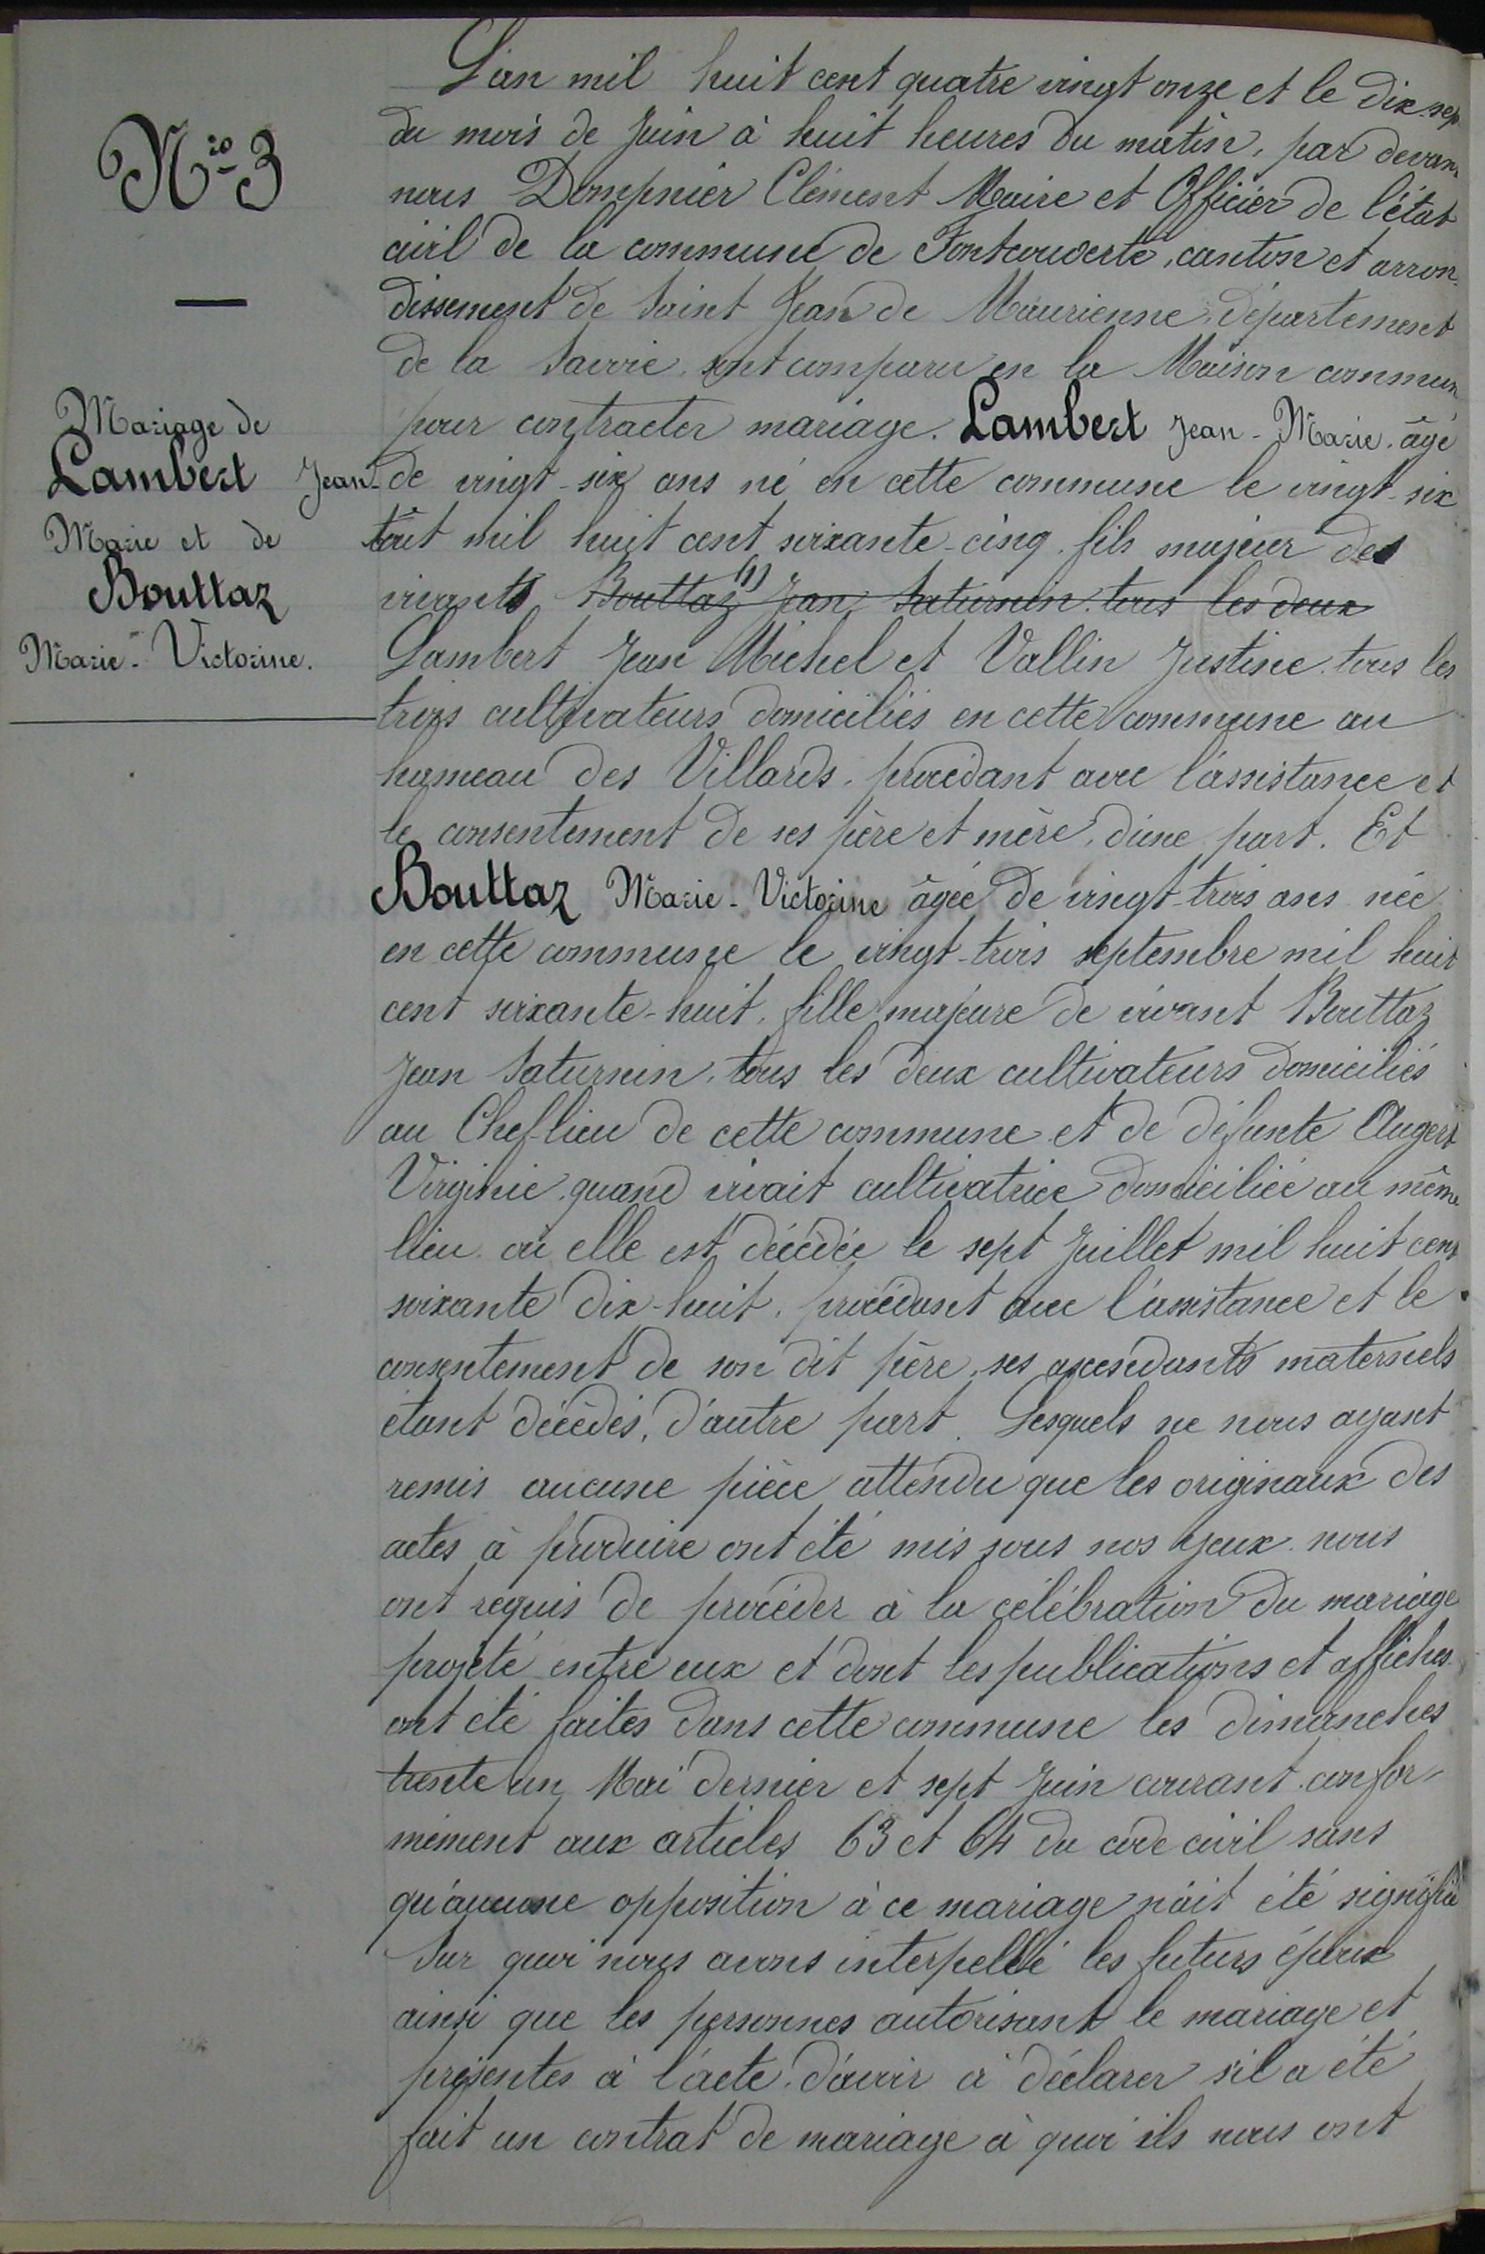 Nro 3
Mariage de
Lambert Jean-
Marie et de
Bouttaz
Marie-Victorine.
L'an mil huit cent quatre vingt onze et le dix-sep
du mois de Juin à huit heures du matin, par devan
nous Dompnier Clément Maire et Officier de l'état
civil de la commune de Fontcouverte, canton et arron
dissement de Saint Jean de Maurienne, département
de la Savoie, sont comparu en la Maison commun
pour contracter mariage. Lambert Jean-Marie, âgé
de vingt-six ans né en cette commune le vingt-six
août mil huit cent soixante-cinq, fils majeur des
vivants Bouttaz (1) Jean Saturnin, tous les deux
Lambert Jean Michel et Vallin Justine, tous les
trois cultivateurs domiciliés en cette commune au
hameau des Villards, procédant avec l'assistance et
le consentement de ses père et mère, d'une part. Et
Bouttaz Marie-Victorine âgée de vingt-trois ans née
en cette commune le vingt-trois septembre mil huit
cent soixante-huit, fille majeure de vivant Bouttaz
Jean Saturnin, tous les deux cultivateurs domiciliés
au Chef-lieu de cette commune et de défunte Augert
Virginie, quand vivait cultivatrice domiciliée au même
lieu où elle est décédée le sept Juillet mil huit cent
soixante dix-huit, procédant avec l'assistance et le
consentement de son dit père, ses ascendants maternels
étant décédés, d'autre part. Lesquels ne nous ayant
remis aucune pièce attendu que les originaux des
actes à produire ont été mis sous nos yeux, nous
ont requis de procéder à la célébration du mariage
projeté entre eux et dont les publications et affiches
ont été faites dans cette commune les dimanches
trente un Mai dernier et sept Juin courant, confor-
mément aux articles 63 et 64 du code civil sans
qu'aucune opposition à ce mariage n'ait été signifiée
Sur quoi nous avons interpellé les futurs époux
ainsi que les personnes autorisant le mariage et
présentes à l'acte, d'avoir à déclarer s'il a été
fait un contrat de mariage à quoi ils nous ont